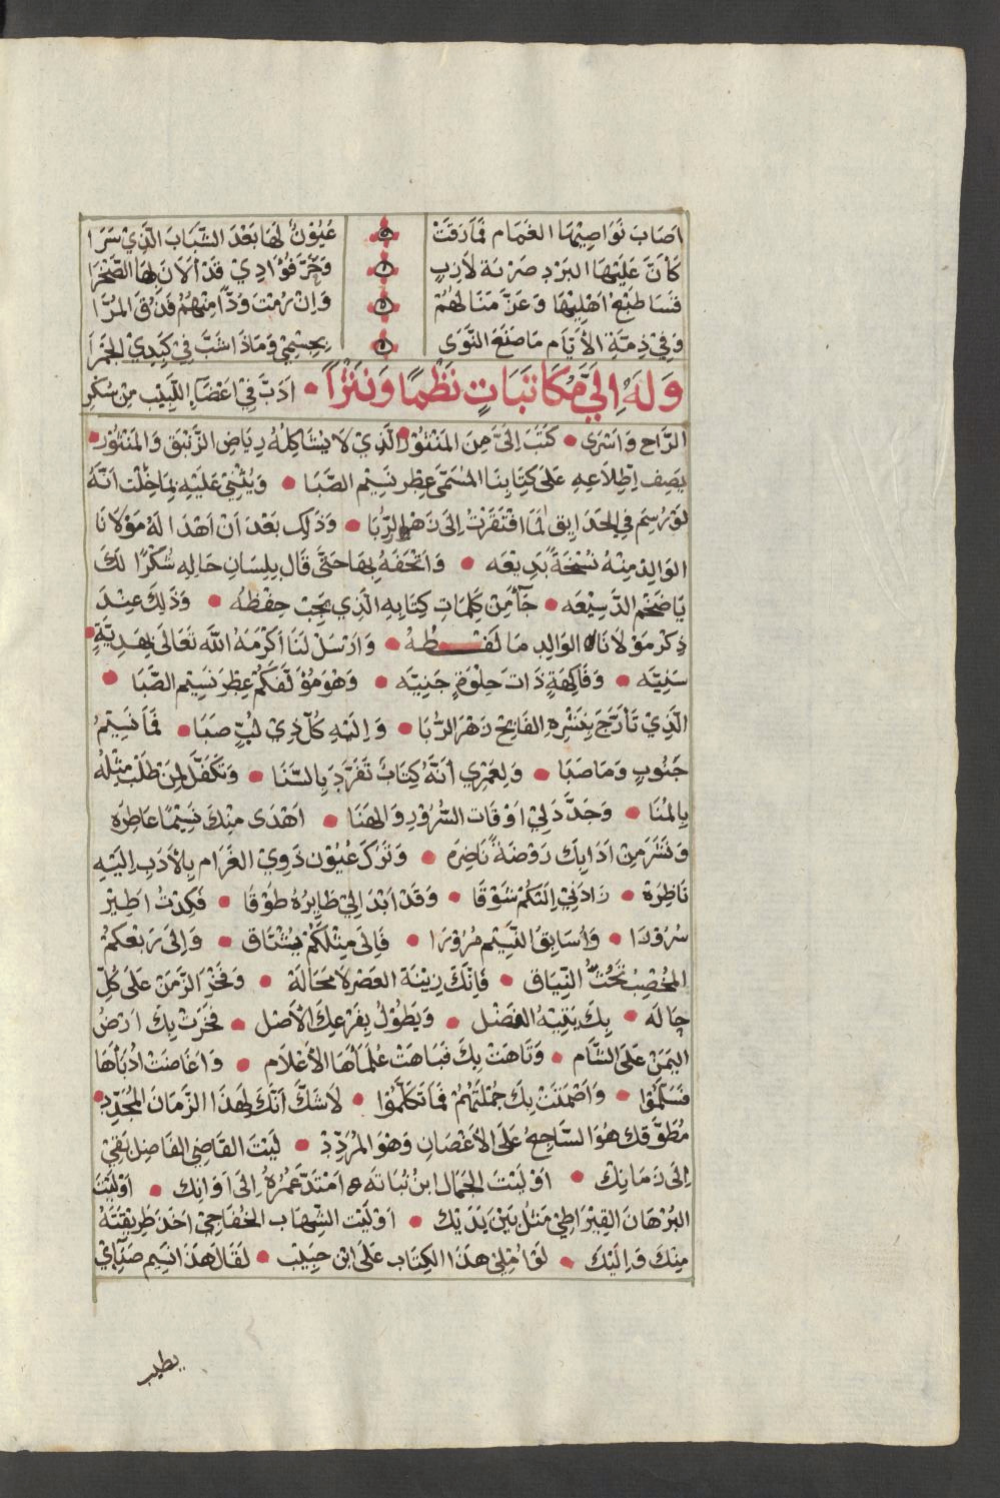 اَصَابَ نَوَاصِيْهَا الغَمَام فَمَا رَقَتْ عُيُوْنٌ لَهَا بَعْدَ الشَّبَابَ الَّذِيْ سَرَا
كَاَنَّ عَلَيْهَا البَرْدِ ضَرْبَة لَازِبٍ وَحَرَّ فُؤَادِيْ قَدْ اَلَانَ لهَا الصَّخْرَا
فَسَا طَبْعُ اَهْلِيْهَا وَعَزَّ مَنَالهُمْ وَاِنْ رُمْتَ وَدًّا مِنْهُمُ فَذُقِ المُرَّا
وَفِيْ ذِمَّةِ الاَيَّام مَا صَنَعَ النَّوَى بِجِسْمِيْ وَمَاذَا شَبَّ فِيْ كَبِدِيْ الجَمْرَا
وَلَهُ اِلَيَّ مُكَاتَبَاتٍ نَظْمًا وَنَثْرًا • اَدَبَّ فِيْ اَعْضَآءِ اللَّبِيْبِ مِنْ سُكْرِ
الرَّاح وَاَسْرَى • كَتَبَ اِلَىَّ مِنَ المَنْثوْر الَّذِيْ لَا يُشَاكِلُهُ رِيَاضِ الزَّنْبَقِ وَالمَنْثوْر •
يَصِف اِطِّلَاعِهِ عَلَى كِتَابِنَا المُسَمَّى عِطْرِ نَسِيْم الصَّبَا • وَيُثْنِيْ عَلَيْهِ بِمَا خِلْت اَنَّهُ
لَوْ رُسِمَ فِي الحَدَايِق لَمَا افْتَقَرْتُ اِلَى زَهْرِ الرُّبَا • وَذَلِك بَعْدَ اَنْ اَهْدَا لَهُ مَوْلَانَا
الوَالِدْ مِنْهُ نُسْخَةً بَدِيْعَه • وَاَتْحَفَهُ بِهَا حَتَّى قَال بِلِسَانِ حَالِهِ شُكْرًا لَكَ
يَا ضَخْم الدَّسِيْعَه • جَآء مِنْ كَلِمَاتِ كِتَابِهِ الَّذِي يَجِبْ حِفْظُهُ • وَذَلِكَ عِنْدَ
ذِكْرِ مَوْلَانَا الوَالِدِ مَا لَفْـظُهُ • وَاَرْسَلْ لَنَا اَكْرَمَهُ اللّٰه تَعَالَى بِهَدِيَّةٍ •
سَنِيَّه • وَفَاكِهَةٍ ذَات حِلْوَةٍ جَنِيَّه • وَهْوَ مُؤَلَّفَكُمْ عِطْرِ نَسِيْم الصَّبَا •
الَّذِيْ تَأَرَّجَ بِنَشْرِهِ الفَايِحْ زَهْرَ الرُّبَا • وَاِلَيْهِ كُلّ ذِيْ لُبٍّ صَبَا • فَمَا نَسِيْمُ
جَنُوبٍ وَمَا صَبَا • وَلعَمْرِي اَنَّهُ كِتَابٌ تَفَرَّدَ بِالسَّنَا • وَتَكَفَّلَ لِمَنْ طَلَبْ مِثْلهُ
بِالمُنَا • وَجَدَّدَ لِيْ اَوْقَات السُّرُوْرِ وَالهَنَا • اَهْدَى مِنْكَ نَسِيْمًا عَاطِرَه
وَنَشَرَ مِنْ اَدَابِكَ رَوْضَةً نَاضِرَه • وَتَرَكَ عُيُوْن ذَوِيْ الغَرَام بِالاَدَبِ اِلَيْهِ
نَاظِرَة • زَادَنِيْ اِلَيْكُمْ شَوْقًا • وَقَدْ اَبْدَا لِيْ طَايِرُهُ طَوْقًا • فَكِدْتُ اَطِيْر
سُرُوْرًا • وَاُسَابِقَ النَّسِيْم مُرُوْرَا • فَاِنِّى مِثْلَكُمْ يَشْتَاق • وَاِلَى رَبْعكُمْ
المُخْصِبْ تَحُثُّ النِّيَاق • فَاِنَّكَ زِيْنَة العَصْر لَا مَحَالَة • وَفَخْرُ الزَّمَنْ عَلَى كُلّ
حَالَه • بِكَ بَقِيَّهُ الفَضْل • وَيَطُوْلُ بِفَرْعِكَ الاَصْل • فَخَرَتْ بِكَ اَرْضُ
اليَمَنْ عَلَى الشَّام • وَتَاهَتْ بِكَ فَبَاهَتْ عُلَمَآهَا الاَعْلَام • وَاَغَاضَتْ اُدَبَآهَا
فَسَلَّمُوْا • وَاَصْمَتَتْ بِكَ جُمْلَتَهُمْ فَمَا تَكَلَّمُوْا • لَا شَكَّ اَنَّكَ لهَذَا الزَّمَان المُجَدِّد •
مُطَوَّقك هُوَ السَّاجِعُ عَلَى الاَغْصَانِ وَهْوَ المُرَدِّدْ • لَيْتَ القَاضِي الفَاضِل بَقِيْ
اِلَى زَمَانِكْ • اَوْ لَيْتَ الجَمَال ابنُ نُبَاتَه امْتَدَّ عُمْرُهُ اِلَى اَوَانِك • اَوْ لَيْتَ
البُرْهَانَ القِيْرَاطِيْ مَثُلَ بَيْنَ يَدَيْك • اَوْ لَيْت الشِّهَاب الخفَاجِيْ اَخَذ طَرِيْقَتَهُ
مِنْكَ وَاِلَيْكَ • لَوْ اُمْلِيَ هَذَا الكِتَاب عَلَى ابْن حَبِيْب • لَقَالَ هَذَا نَسِيْم صَبَآيْ
يطيب